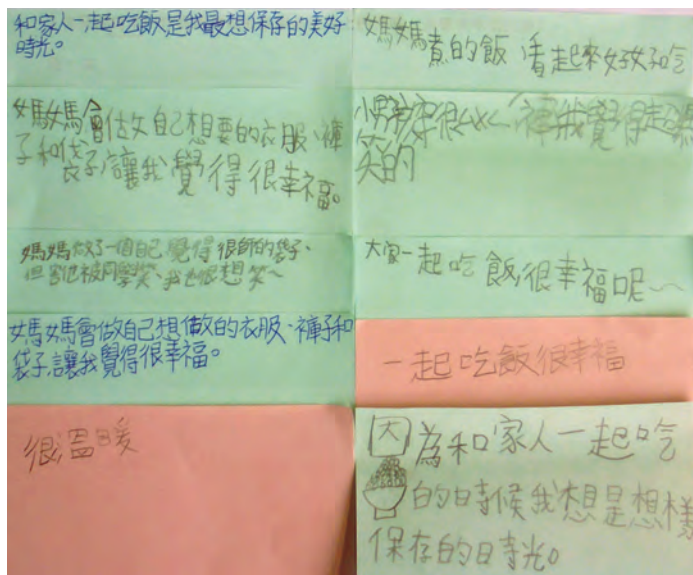 和家人一起吃飯是我最想保存的美好
時光。
媽媽會做自己想要的衣服、褲
子和袋子,讓我覺得很幸福。
媽媽做了一個自己覺得很帥的袋子、
但害他被同學笑、我也很想笑~
媽媽會做自己想做的衣服、褲子和
袋子,讓我覺得很幸福。
很溫暖
媽媽煮的飯看起來好好吃
小男孩穿很ㄙㄨㄥˊ褲我覺得超
笑的
大家一起吃飯很幸福呢~
一起吃飯很幸福
因為和家人一起吃
的時候我想是想樣
保存的時光。